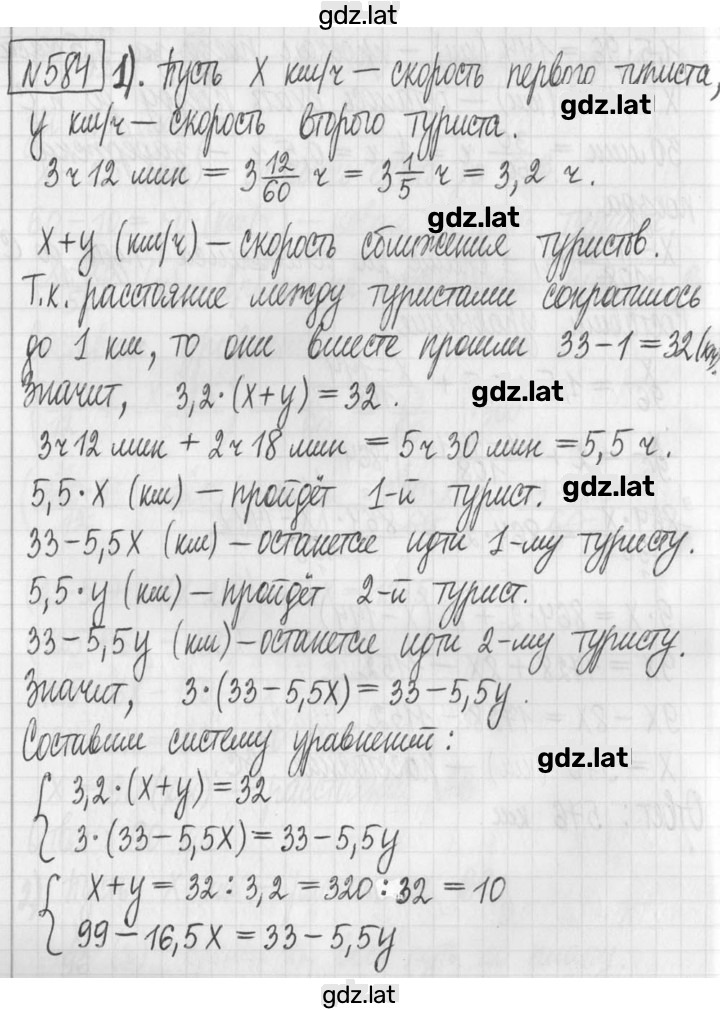 gdz.lat
№584 1). Пусть x км/ч – скорость первого туриста,
gdz.lat
y км/ч – скорость второго туриста.
3ч 12 мин = 3 12/60 ч = 3 1/5 ч = 3,2 ч.
gdz.lat
x+y (км/ч) – скорость сближения туристов.
Т.к. расстояние между туристами сократилось
до 1 км, то они вместе прошли 33-1=32(км).
Значит, 3,2·(x+y)=32.
gdz.lat
3ч 12 мин + 2ч 18 мин = 5ч 30 мин = 5,5 ч.
5,5·x (км) – пройдёт 1-й турист.
gdz.lat
33-5,5x (км) – останется идти 1-му туристу.
5,5·y (км) – пройдёт 2-й турист.
33-5,5y (км) – останется идти 2-му туристу.
Значит, 3·(33-5,5x)=33-5,5y.
Составим систему уравнений:
gdz.lat
{ 3,2·(x+y)=32
3·(33-5,5x)=33-5,5y
{ x+y=32:3,2=320:32=10
99-16,5x=33-5,5y
gdz.lat